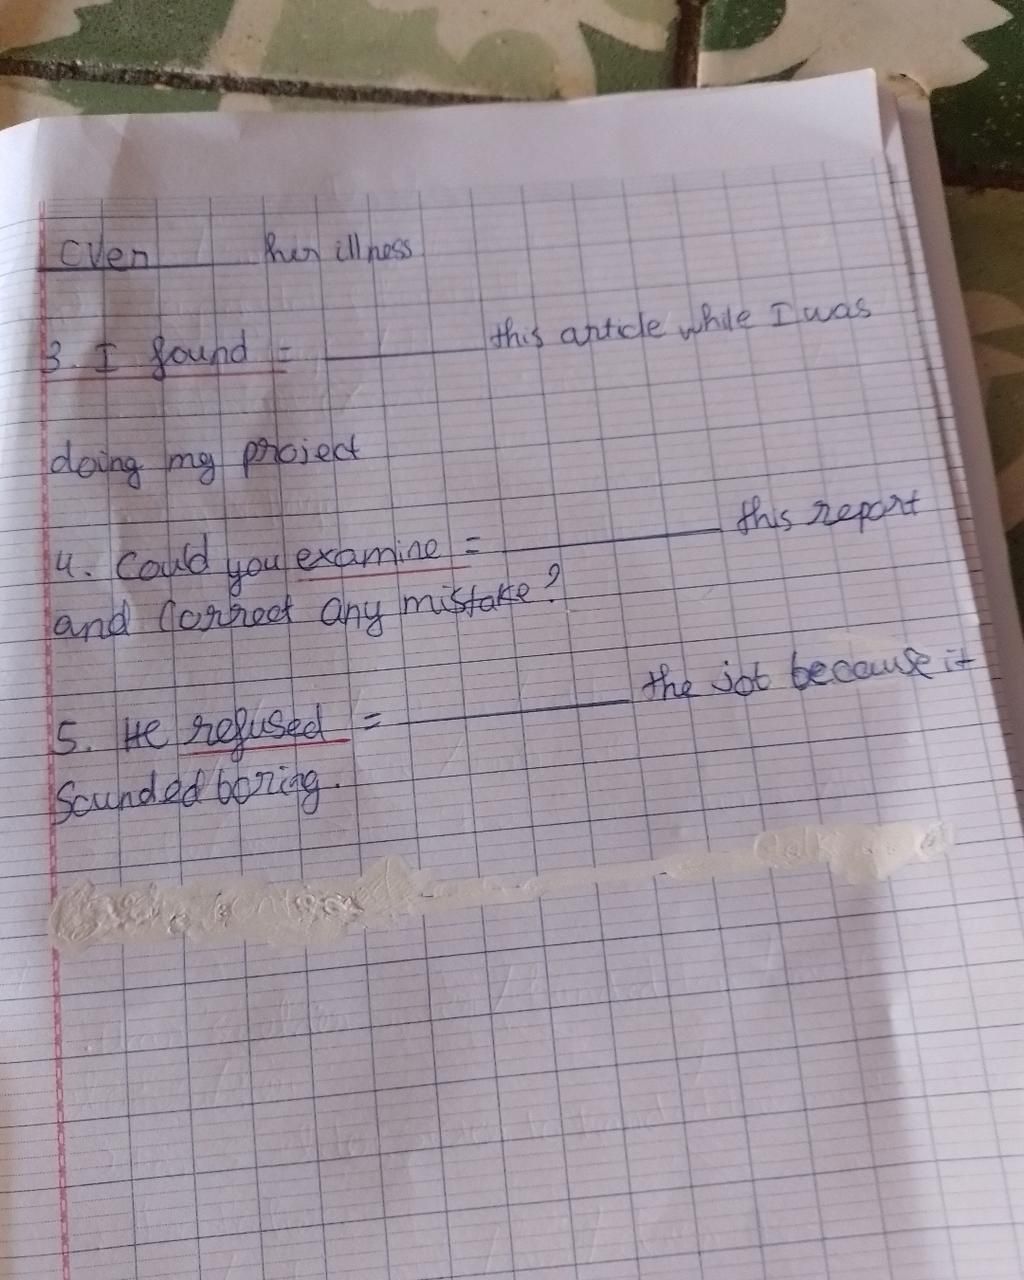 over her illness
3. I found = ________ this article while I was
doing my project
4. Could you examine = ________ this report
and correct any mistake?
5. He refused = ________ the job because it
Sounded boring.